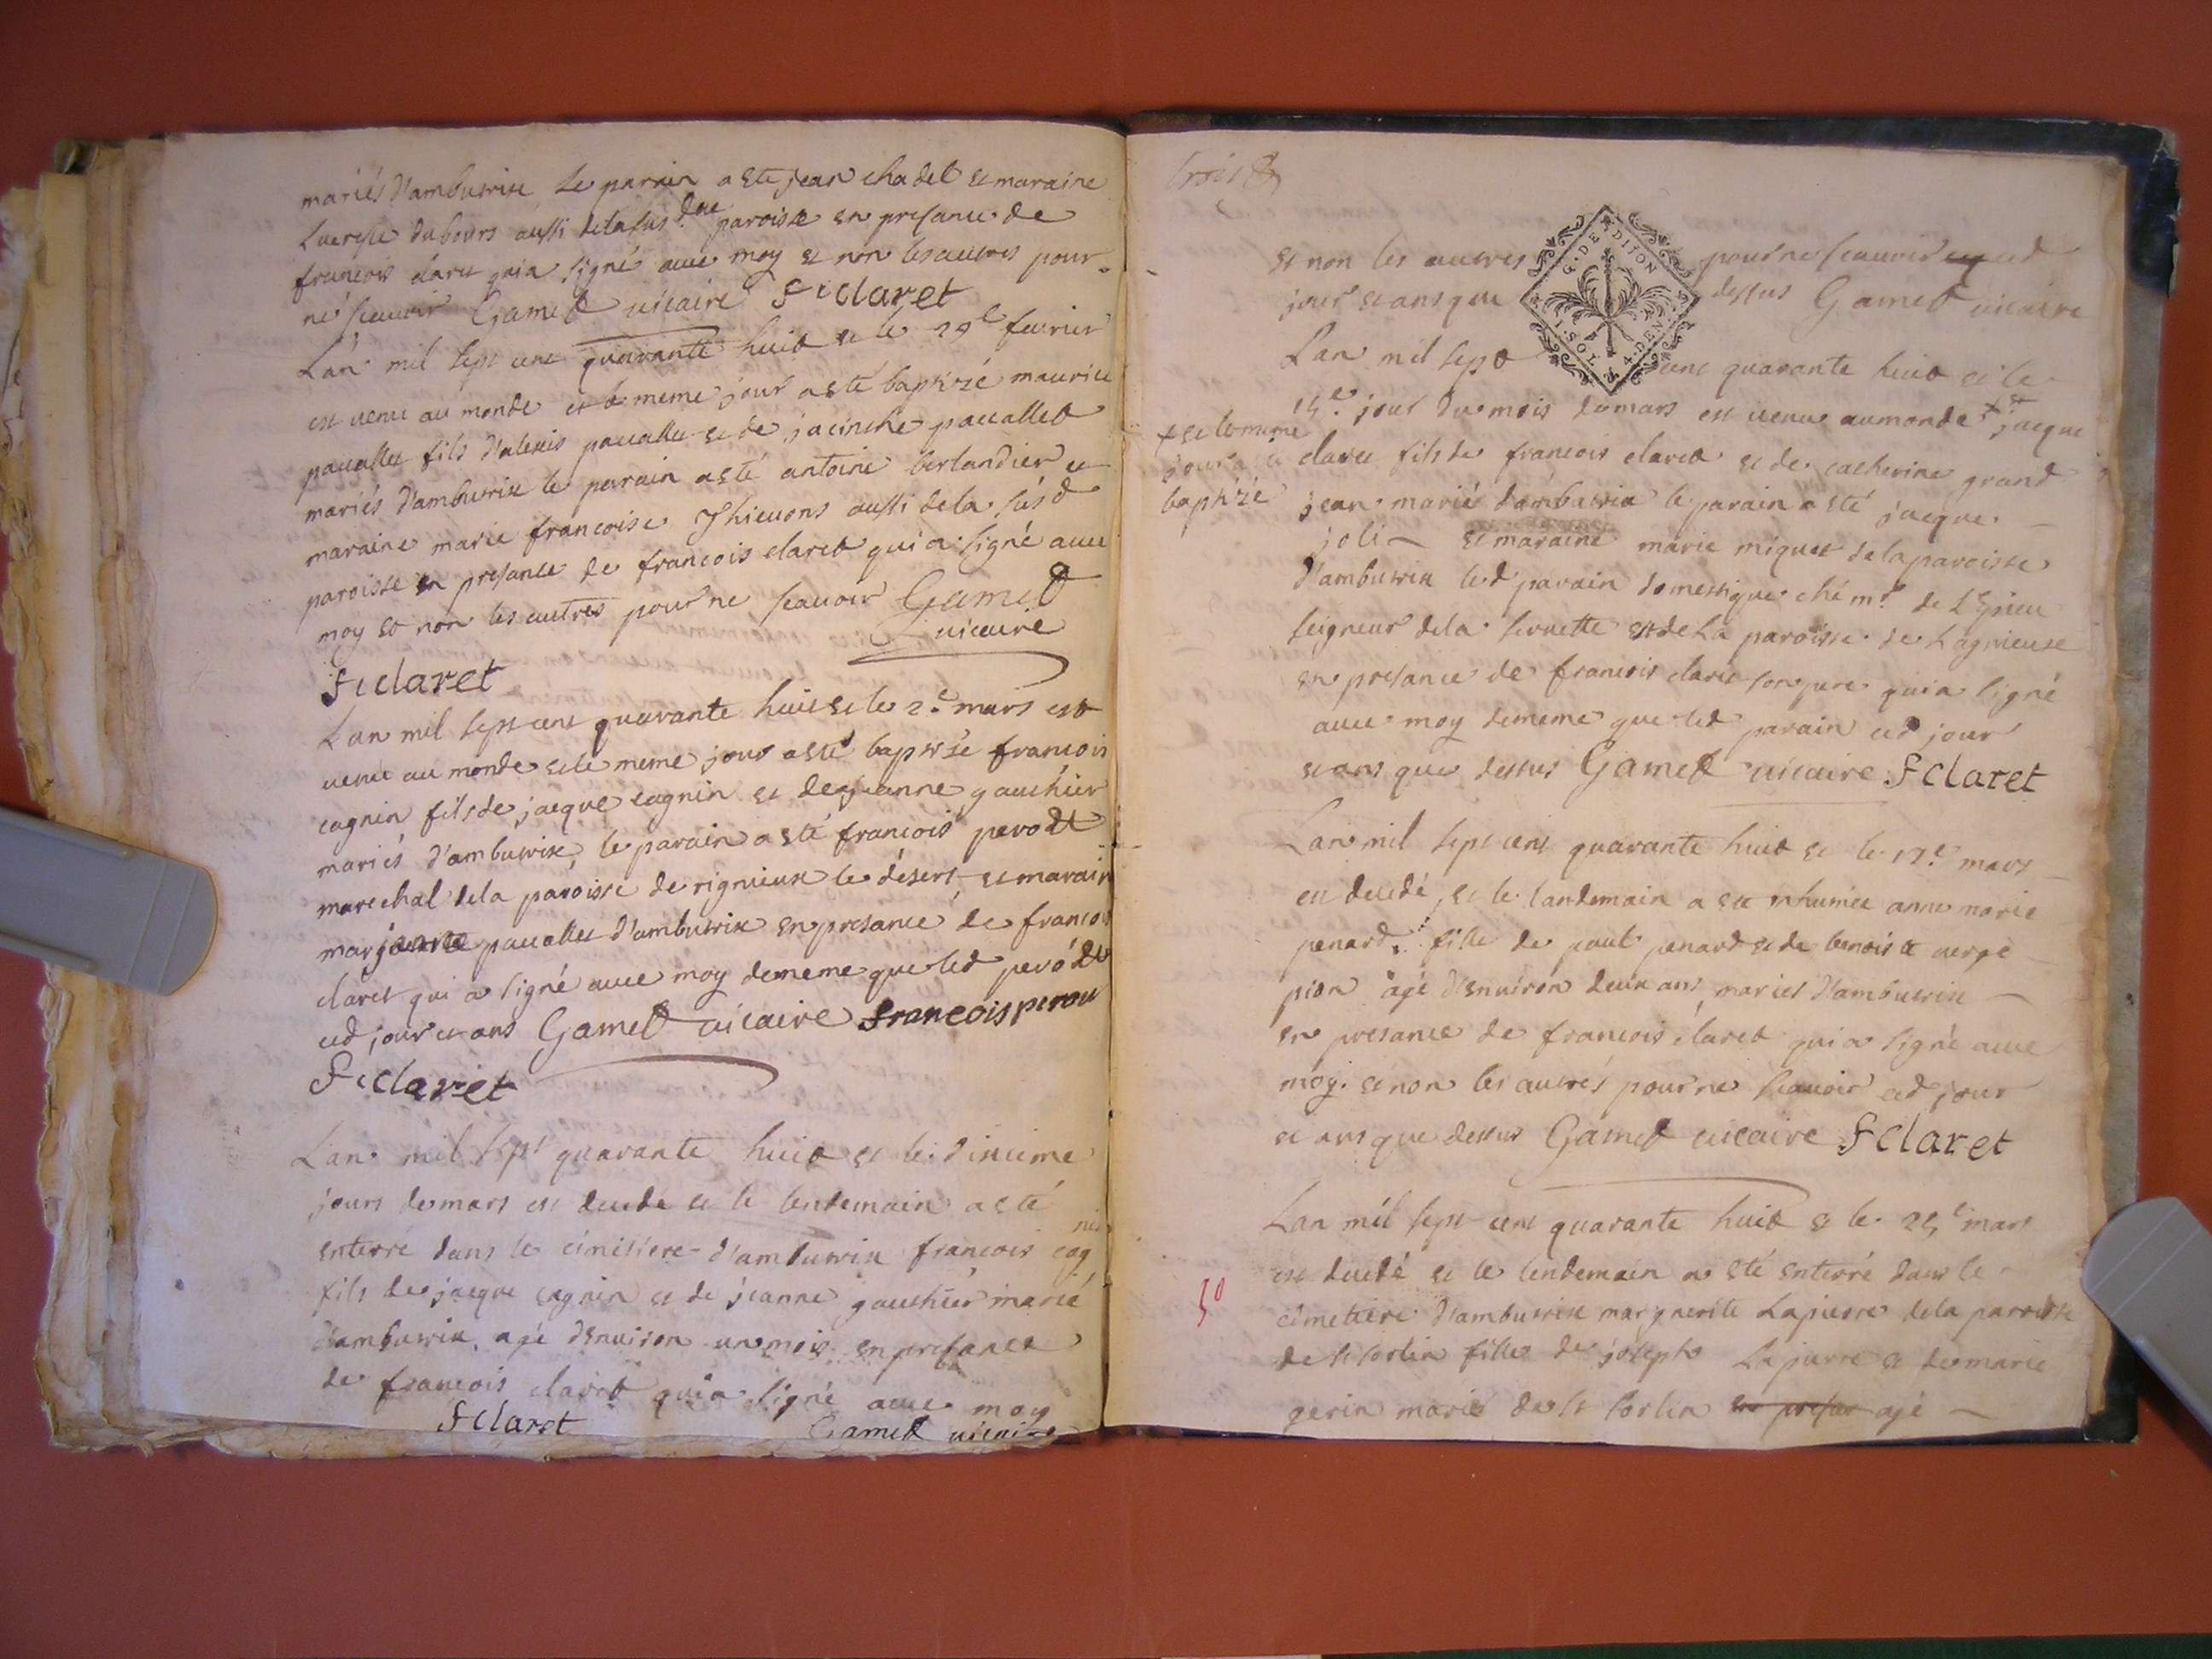 mariés d'ambutrix le parain a eté jean chadel et maraine
lucresse dubours aussi de la susdite paroisse en presance de
francois claret qui a signé avec moy et non les autres pour
ne scavoir Gamet vicaire F claret
L'an mil sept cent quarante huit et le 29e fevrier
est venu au monde et le meme jour a eté baptizé maurice
pavallet fils d'alexis pavallet et de jacinthe pavallet
mariés d'ambutrix le parain a eté antoine berlandier et
maraine marie francoise Thievons aussi de la susd
paroisse en presance de francois claret qui a signé avec
moy et non les autres pour ne scavoir Gamet
vicaire
F claret
Lan mil sept cent quarante huit et le 2e mars est
venu au monde et le meme jour a eté baptizé francois
cagnin fils de jacque cagnin et de jeanne gauthier
mariés d'ambutrix, le parain a eté francois perodet
marechal de la paroisse de rignieux le désert et marain
pavallet d'ambutrix en presance de francois
claret qui a signé avec moy de meme que led
ced jour et ans Gamet vicaire francois perou
F claret
L'an mil sept quarante huit et le dixieme
jours de mars est decede et le lendemain a eté
enterré dans le cimetiere d'ambutrix francois cagnin
fils de jacque cagnin et de jeanne gauthier marié
d'ambutrix, agé d'environ un mois en presance
de francois claret qui a signé avec moy
F claret Gamet vicaire
trois
et non les autres pour ne scavoir ced
jour et ans que dessus Gamet vicaire
G. DE DIJON
I. SOL 4. DEN.
Lan mil sept cent quarante huit et le
15e jour du mois de mars est venu au monde + jacque
+ et le meme
jour a eté
baptizé
claret fils de francois claret et de catherine grand
jean marié d'ambutrix le parain a eté jacque
joli et maraine marie miquet de la paroisse
d'ambutrix led parain domestique ché mr de
seigneur de la servette et de la paroisse de Lagnieux
en presance de francois claret son pere qui a signé
avec moy de meme que led parain ced jour
et ans que dessus Gamet vicaire F Claret
Lan mil sept cent quarante huit et le 17e mars
est decedé, et le landemain a eté inhumée anne marie
penard fille de paul penard et de benoiste verpe
pion agé d'environ deux ans mariés d'ambutrix
en presance de francois claret qui a signé avec
moy et non les autres pour ne scavoir ced jour
et ans que dessus Gamet vicaire F Claret
Lan mil sept cent quarante huit et le 25e mars
est decedé et le lendemain a eté enterré dans le
50
cimetiere d'ambutrix marguerite Lapierre de la paroisse
de st sorlin fille de joseph Lapierre et de marie
gerin marié de st sorlin agé